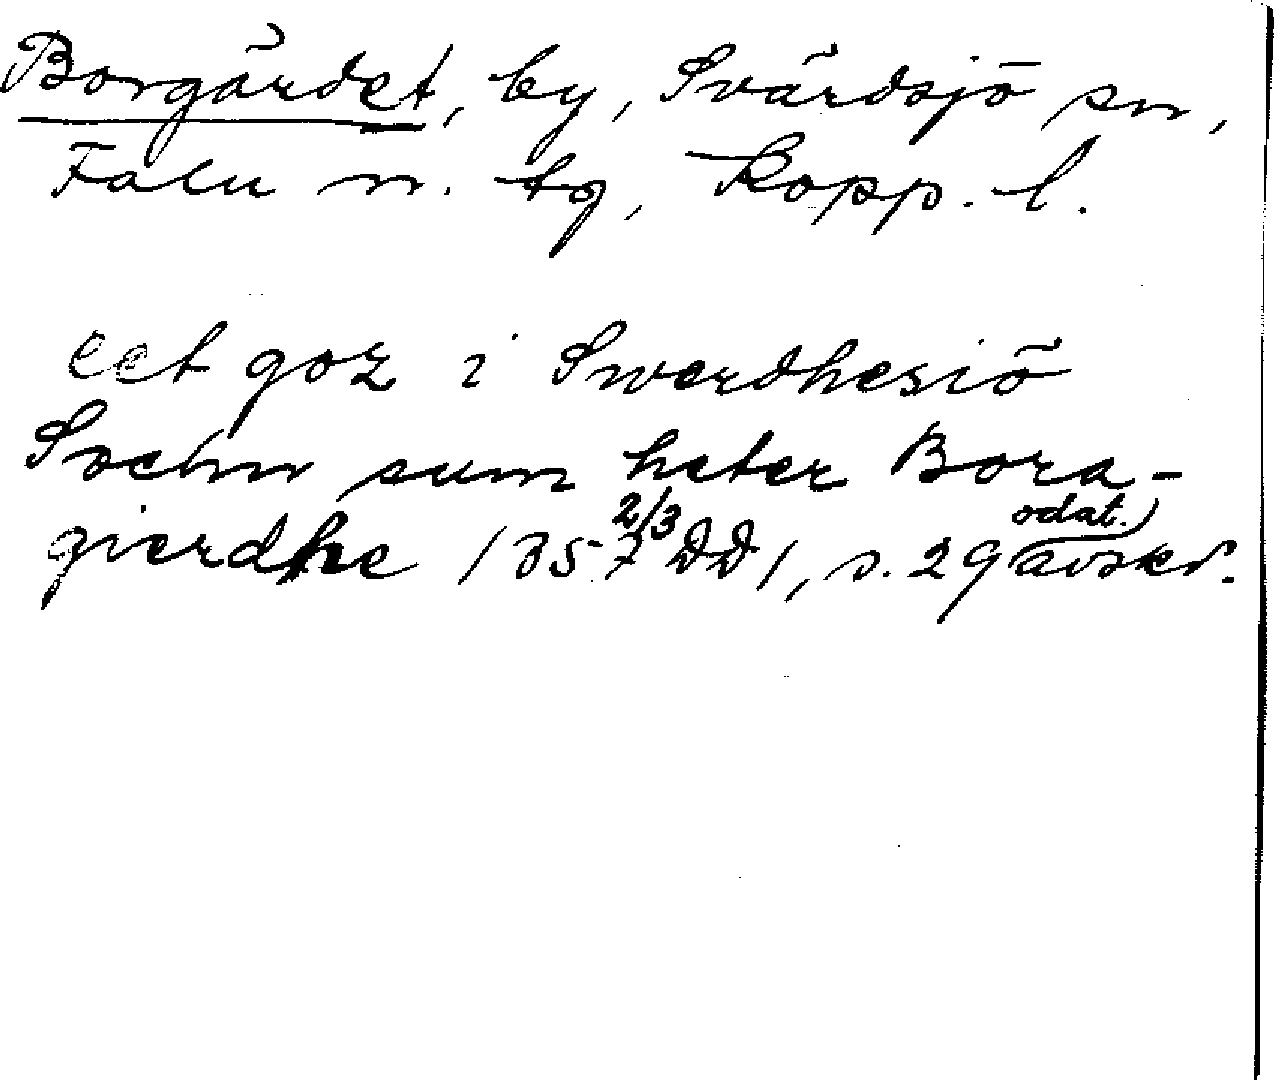 Borgärdet, by, Svärdsjö sn,
Falu n. tg, Kopp. l.
eet goz i Swerdhesiö
Soehn sum heter Bora-
gierdhe 1357 2/3 DD 1, s. 29 odat. avskr.